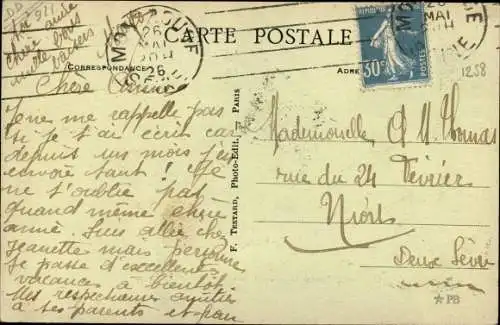 CARTE POSTALE
CORRESPONDANCE
ADRE
26
MAI
26
MAI
30c
1258
Chère
Je ne me rappelle pas
si je t'ai écris car
depuis un mois j'en
envoie tant ! Je
ne t'oublie pas
quand même chère
amie. Suis allée chez
Jeanette mais personne
Je passe d'excellentes
vacances à bientôt.
Mes respectueuses amitiés
à tes parents et pour
F. TESTARD, Photo-Édit., PARIS
Mademoiselle A M Thomas
rue du 24 Février
Niort
Deux Sèvres
PB